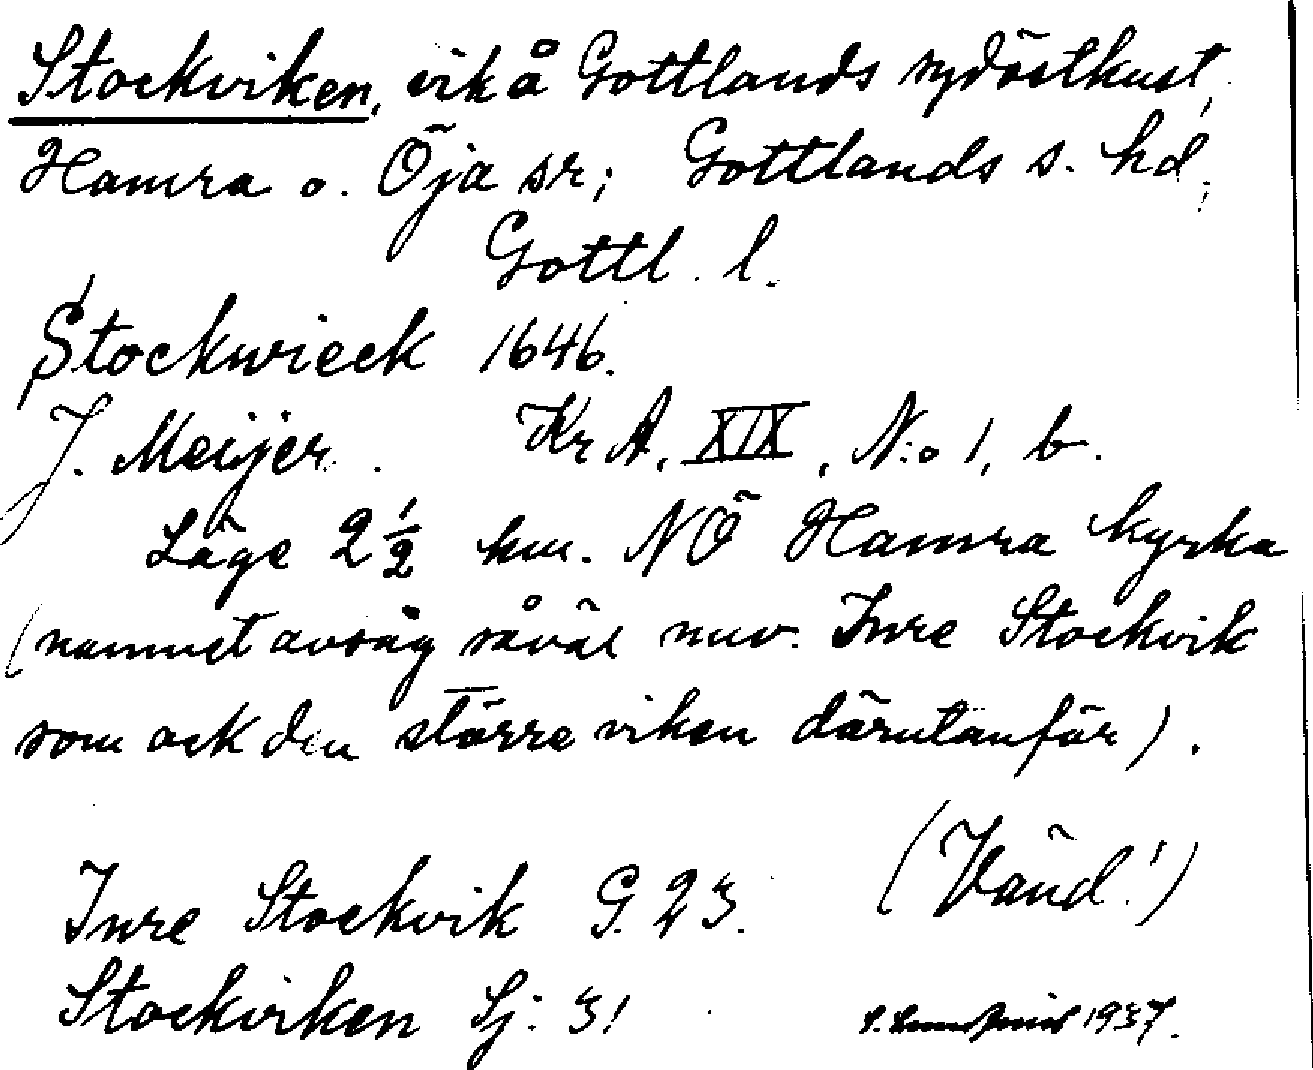 Stockviken, vik å Gottlands sydöstkust,
Hamra o. Öja sr; Gottlands s. hd,
Gottl. l.
Stockwieck 1646.
J. Meijer. Kr A, XIX, N:o 1, b.
Läge 2 1/2 km. NÖ Hamra kyrka
(namnet avsåg såväl nuv. Inre Stockvik
som ock den större viken därutanför).
(Vänd!)
Inre Stockvik G. 23.
Stockviken Sj: 31
1937.